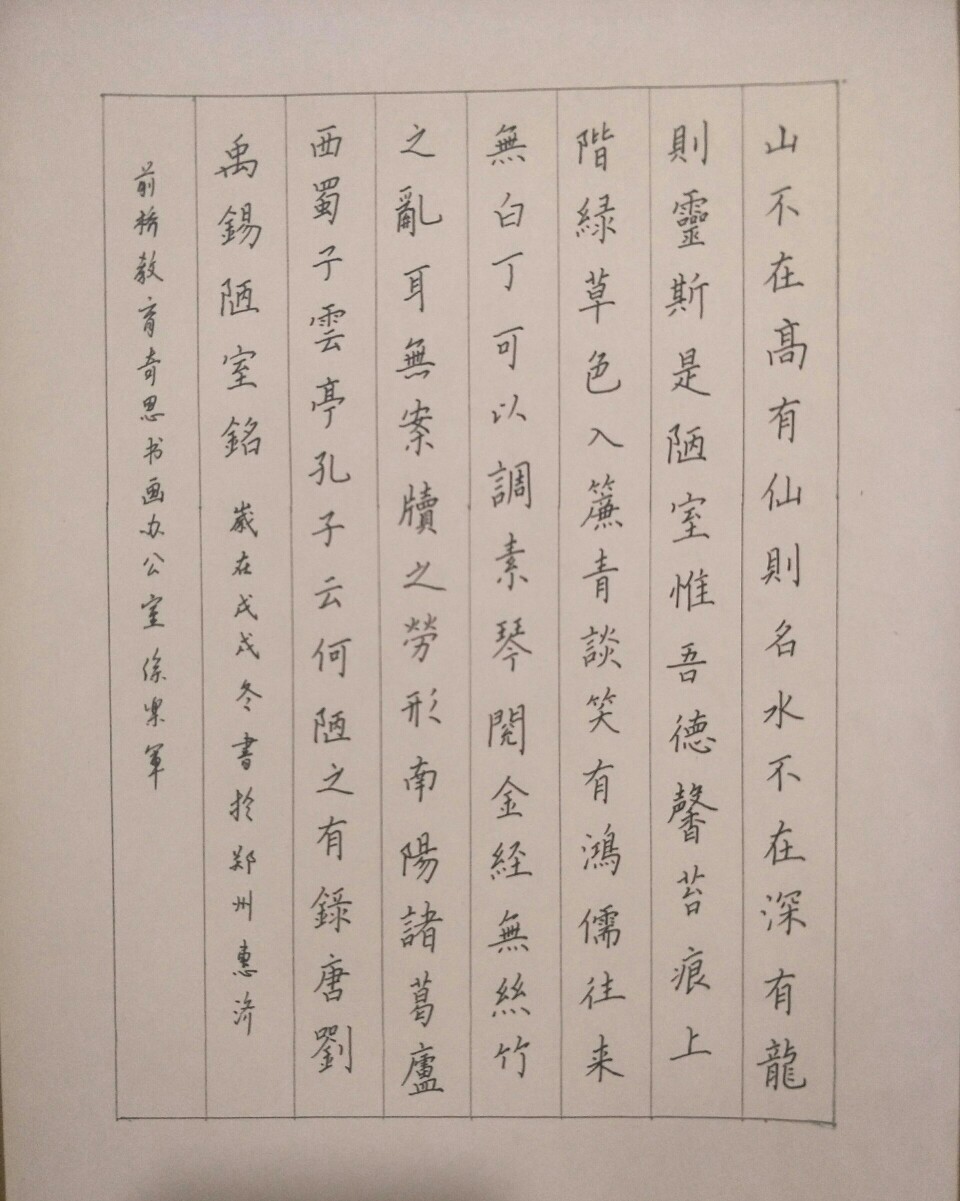 山不在高有仙則名水不在深有龍
則靈斯是陋室惟吾德馨苔痕上
階緑草色入簾青談笑有鴻儒往来
無白丁可以調素琴閱金経無絲竹
之亂耳無案牘之勞形南陽諸葛廬
西蜀子雲亭孔子云何陋之有錄唐劉
禹錫陋室銘 歲在戊戌冬書於郑州惠济
前桥教育奇思书画办公室徐军